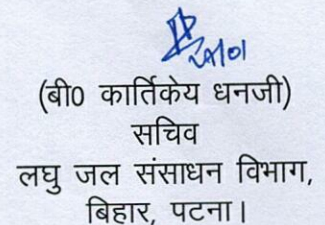 24/01
(बी0 कार्तिकेय धनजी)
सचिव
लघु जल संसाधन विभाग,
बिहार, पटना।